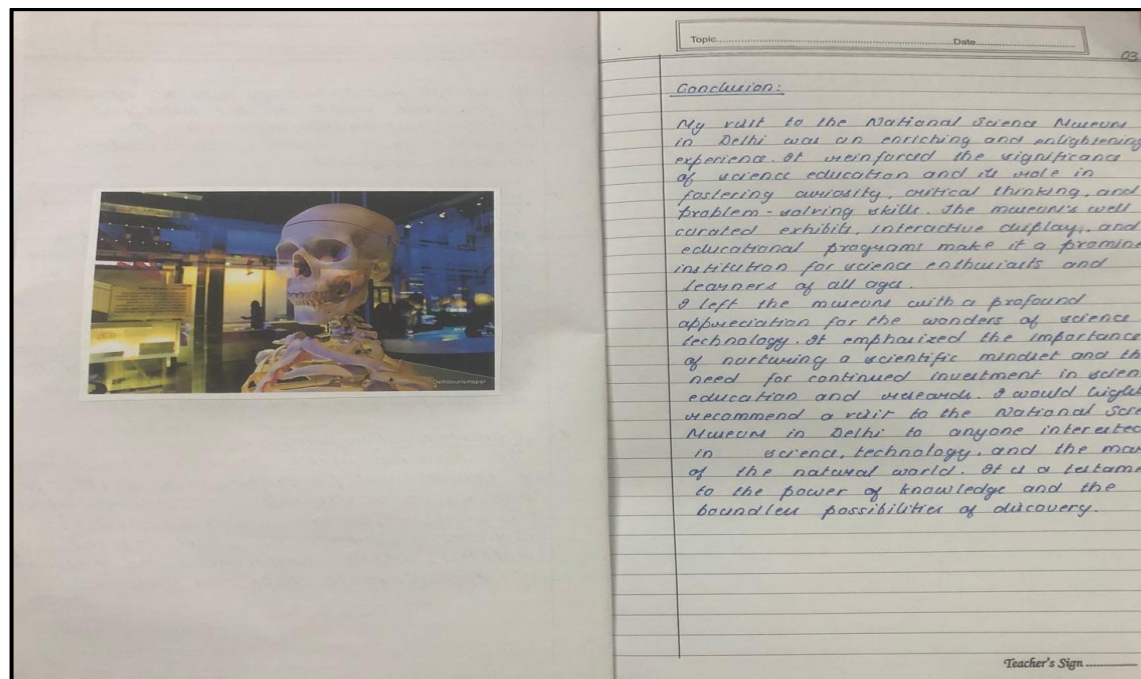 Topic Date
03
Conclusion:
My visit to the National Science Museum
in Delhi was an enriching and enlightening
experience. It reinforced the significance
of science education and its role in
fostering curiosity, critical thinking, and
problem-solving skills. The museum's well
curated exhibits, interactive display, and
educational programs make it a promine
institution for science enthusiasts and
learners of all ages.
I left the museum with a profound
appreciation for the wonders of science
technology. It emphasized the importance
of nurturing a scientific mindset and th
need for continued investment in scien
education and research. I would highl
recommend a visit to the National Scie
Museum in Delhi to anyone interested
in science, technology, and the mar
of the natural world. It is a testame
to the power of knowledge and the
boundless possibilities of discovery.
Teacher's Sign